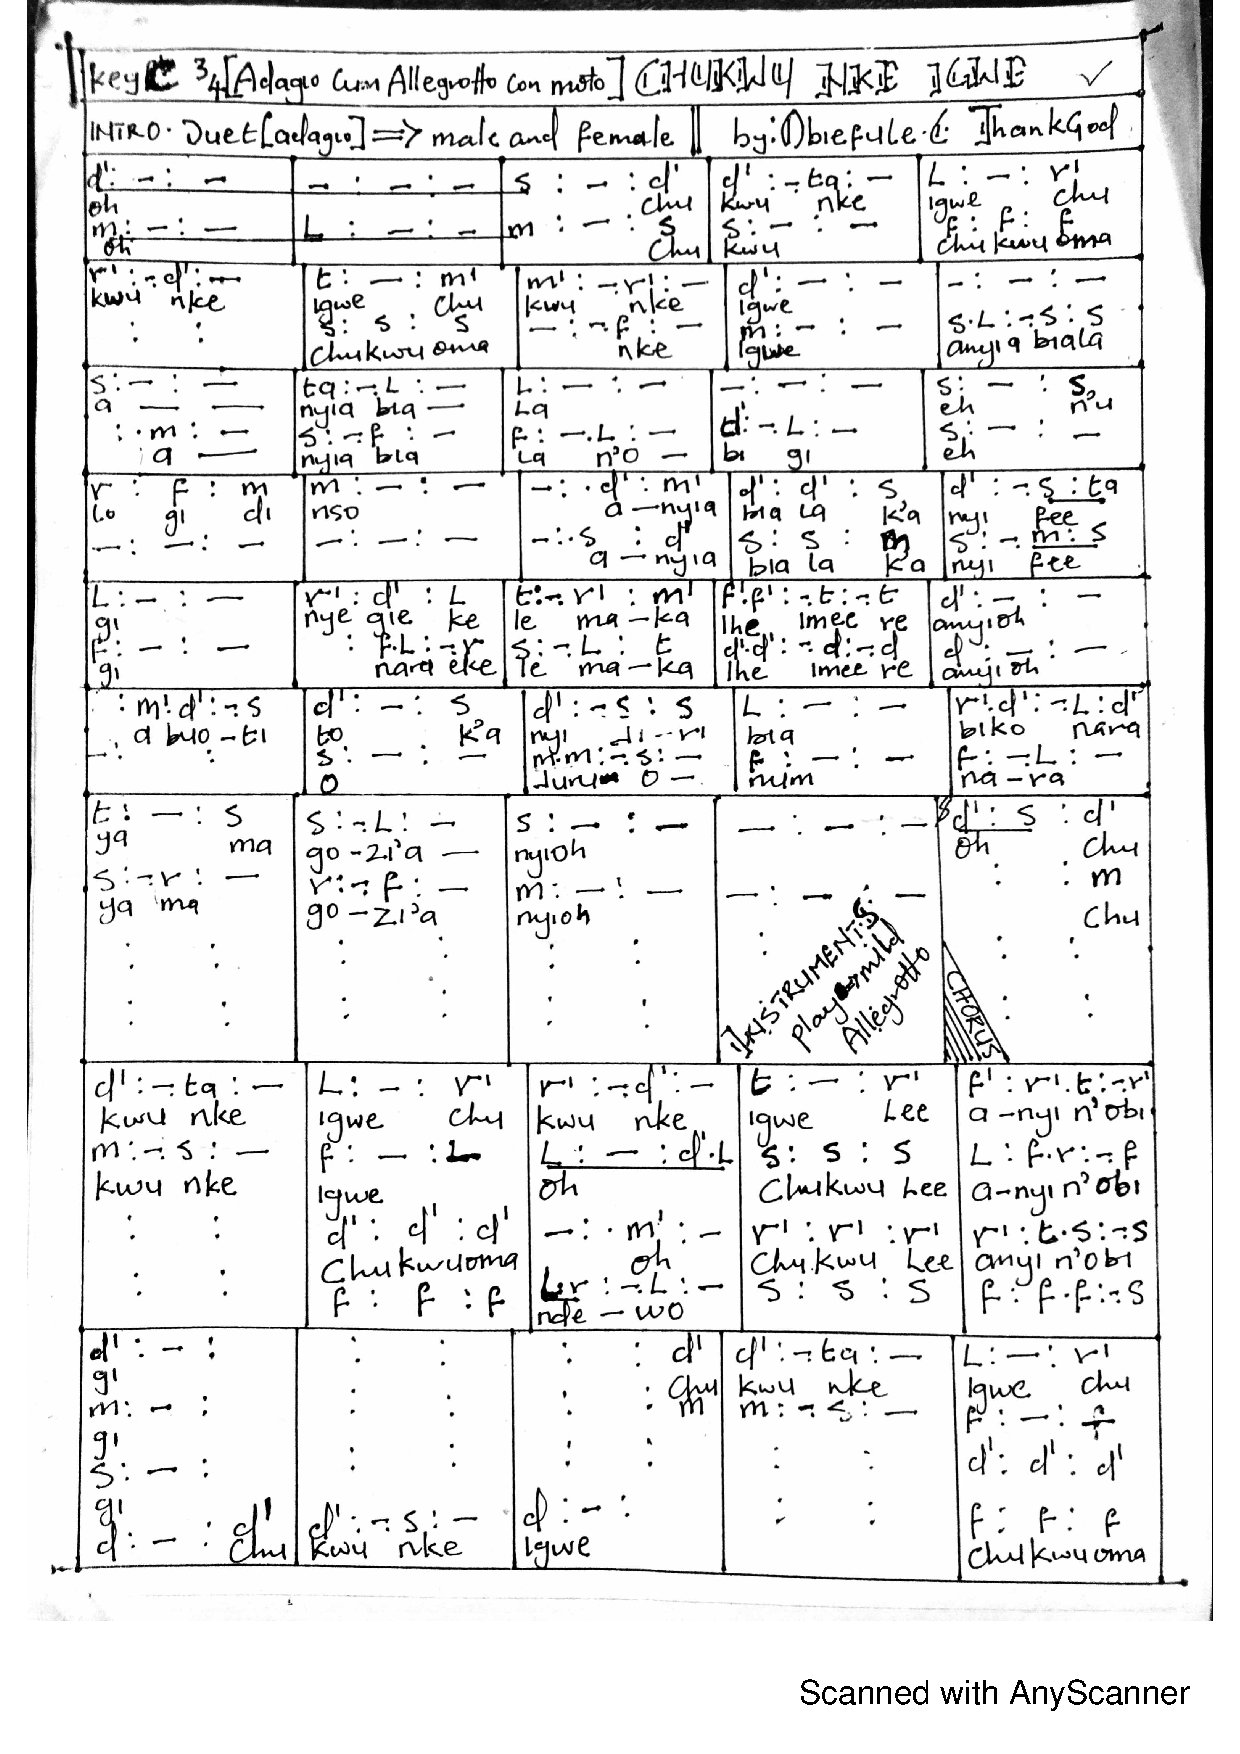 key C 3/4 [Adagio Cum Allegrotto con moto] CHUKWU NKE IGWE ✓
INTRO. Duet [adagio] => male and female || by: Obiefule .C. ThankGod
d': – : – | – : – : – | s : – : d' | d' : -. ta : – | L : – : r'
oh | | chu | kwu nke | igwe chu
m : – : – | L : – : – | m : – : s | s : – : – | f : f : f
oh | | Chu | kwu | chukwuoma
r' : -. d' : – | t : – : m' | m' : -. r' : – | d' : – : – | – : – : –
kwu nke | igwe chu | kwu nke | igwe
: : | s : s : s | – : -. f : – | m : – : – | s.L : -. s : s
chukwuoma | nke | igwe | anyia biala
s : – : – | ta : -. L : – | L : – : – | – : – : – | s : – : s,
a — — | nyia bia — | La | | eh n'u
: . m : – | s : -. f : – | f : -. L : – | d' : -. L : – | s : – : –
a — | nyia bia | La n'O – | bi gi | eh
r : f : m | m : – : – | – : . d' : m' | d' : d' : s | d' : -. s : ta
Lo gi di | nso | a – nyia | bia la k'a | nyi fee
– : – : – | – : – : – | – : . s : d' | s : s : m | s : -. m : s
a – nyia | bia la k'a | nyi fee
L : – : – | r' : d' : L | t : -. r' : m' | f'.f' : -. t : -. t | d' : – : –
gi | nye gie ke | le ma – ka | ihe imee re | anyioh
f : – : – | : f.L : -. r | s : -. L : t | d'.d' : -. d : -. d | d : – : –
gi | nara eke | le ma – ka | ihe imee re | anyi oh
: m'.d' : -. s | d' : – : s | d' : -. s : s | L : – : – | r'.d' : -. L : d'
a buo – ti | to k'a | nyi di – ri | bia | biko nara
– . : : | s : – : – | m.m : -. s : – | f : – : – | f : -. L : –
O | Juru O – | mim | na – ra
t : – : s | s : -. L : – | s : – : – | – : – : – | d' : s : d'
ya ma | go – zi'a — | nyioh | | oh chu
s : -. r : – | r : -. f : – | m : – : – | – : – : – | : : m
ya ma | go – zi'a | nyioh | | Chu
: : | : : | : : | : | : :
: : | : : | : : | | : :
INSTRUMENTS
play => mild
Allegrotto
CHORUS
d' : -. ta : – | L : – : r' | r' : -. d' : – | t : – : r' | f' : r'.t : -. r'
kwu nke | igwe chu | kwu nke | igwe Lee | a – nyi n'obi
m : -. s : – | f : – : L | L : – : d'.L | s : s : s | L : f.r : -. f
kwu nke | igwe | oh | Chukwu Lee | a-nyi n'obi
: : | d' : d' : d' | – : . m' : – | r' : r' : r' | r' : t.s : -. s
Chukwuoma | oh | Chukwu Lee | anyi n'obi
: : | f : f : f | L.r : -. L : – | s : s : s | f : f.f : -. s
nde – wo
d' : – : | : : | : : d' | d' : -. ta : – | L : – : r'
gi | | Chu | kwu nke | igwe chu
m : – : | : : | : : m | m : -. s : – | f : – : f
gi
s : – : | : : | : : | : : | d' : d' : d'
gi
d : – : d' | d' : -. s : – | d : – : | : : | f : f : f
Chu | kwu nke | igwe | | Chukwuoma
Scanned with AnyScanner